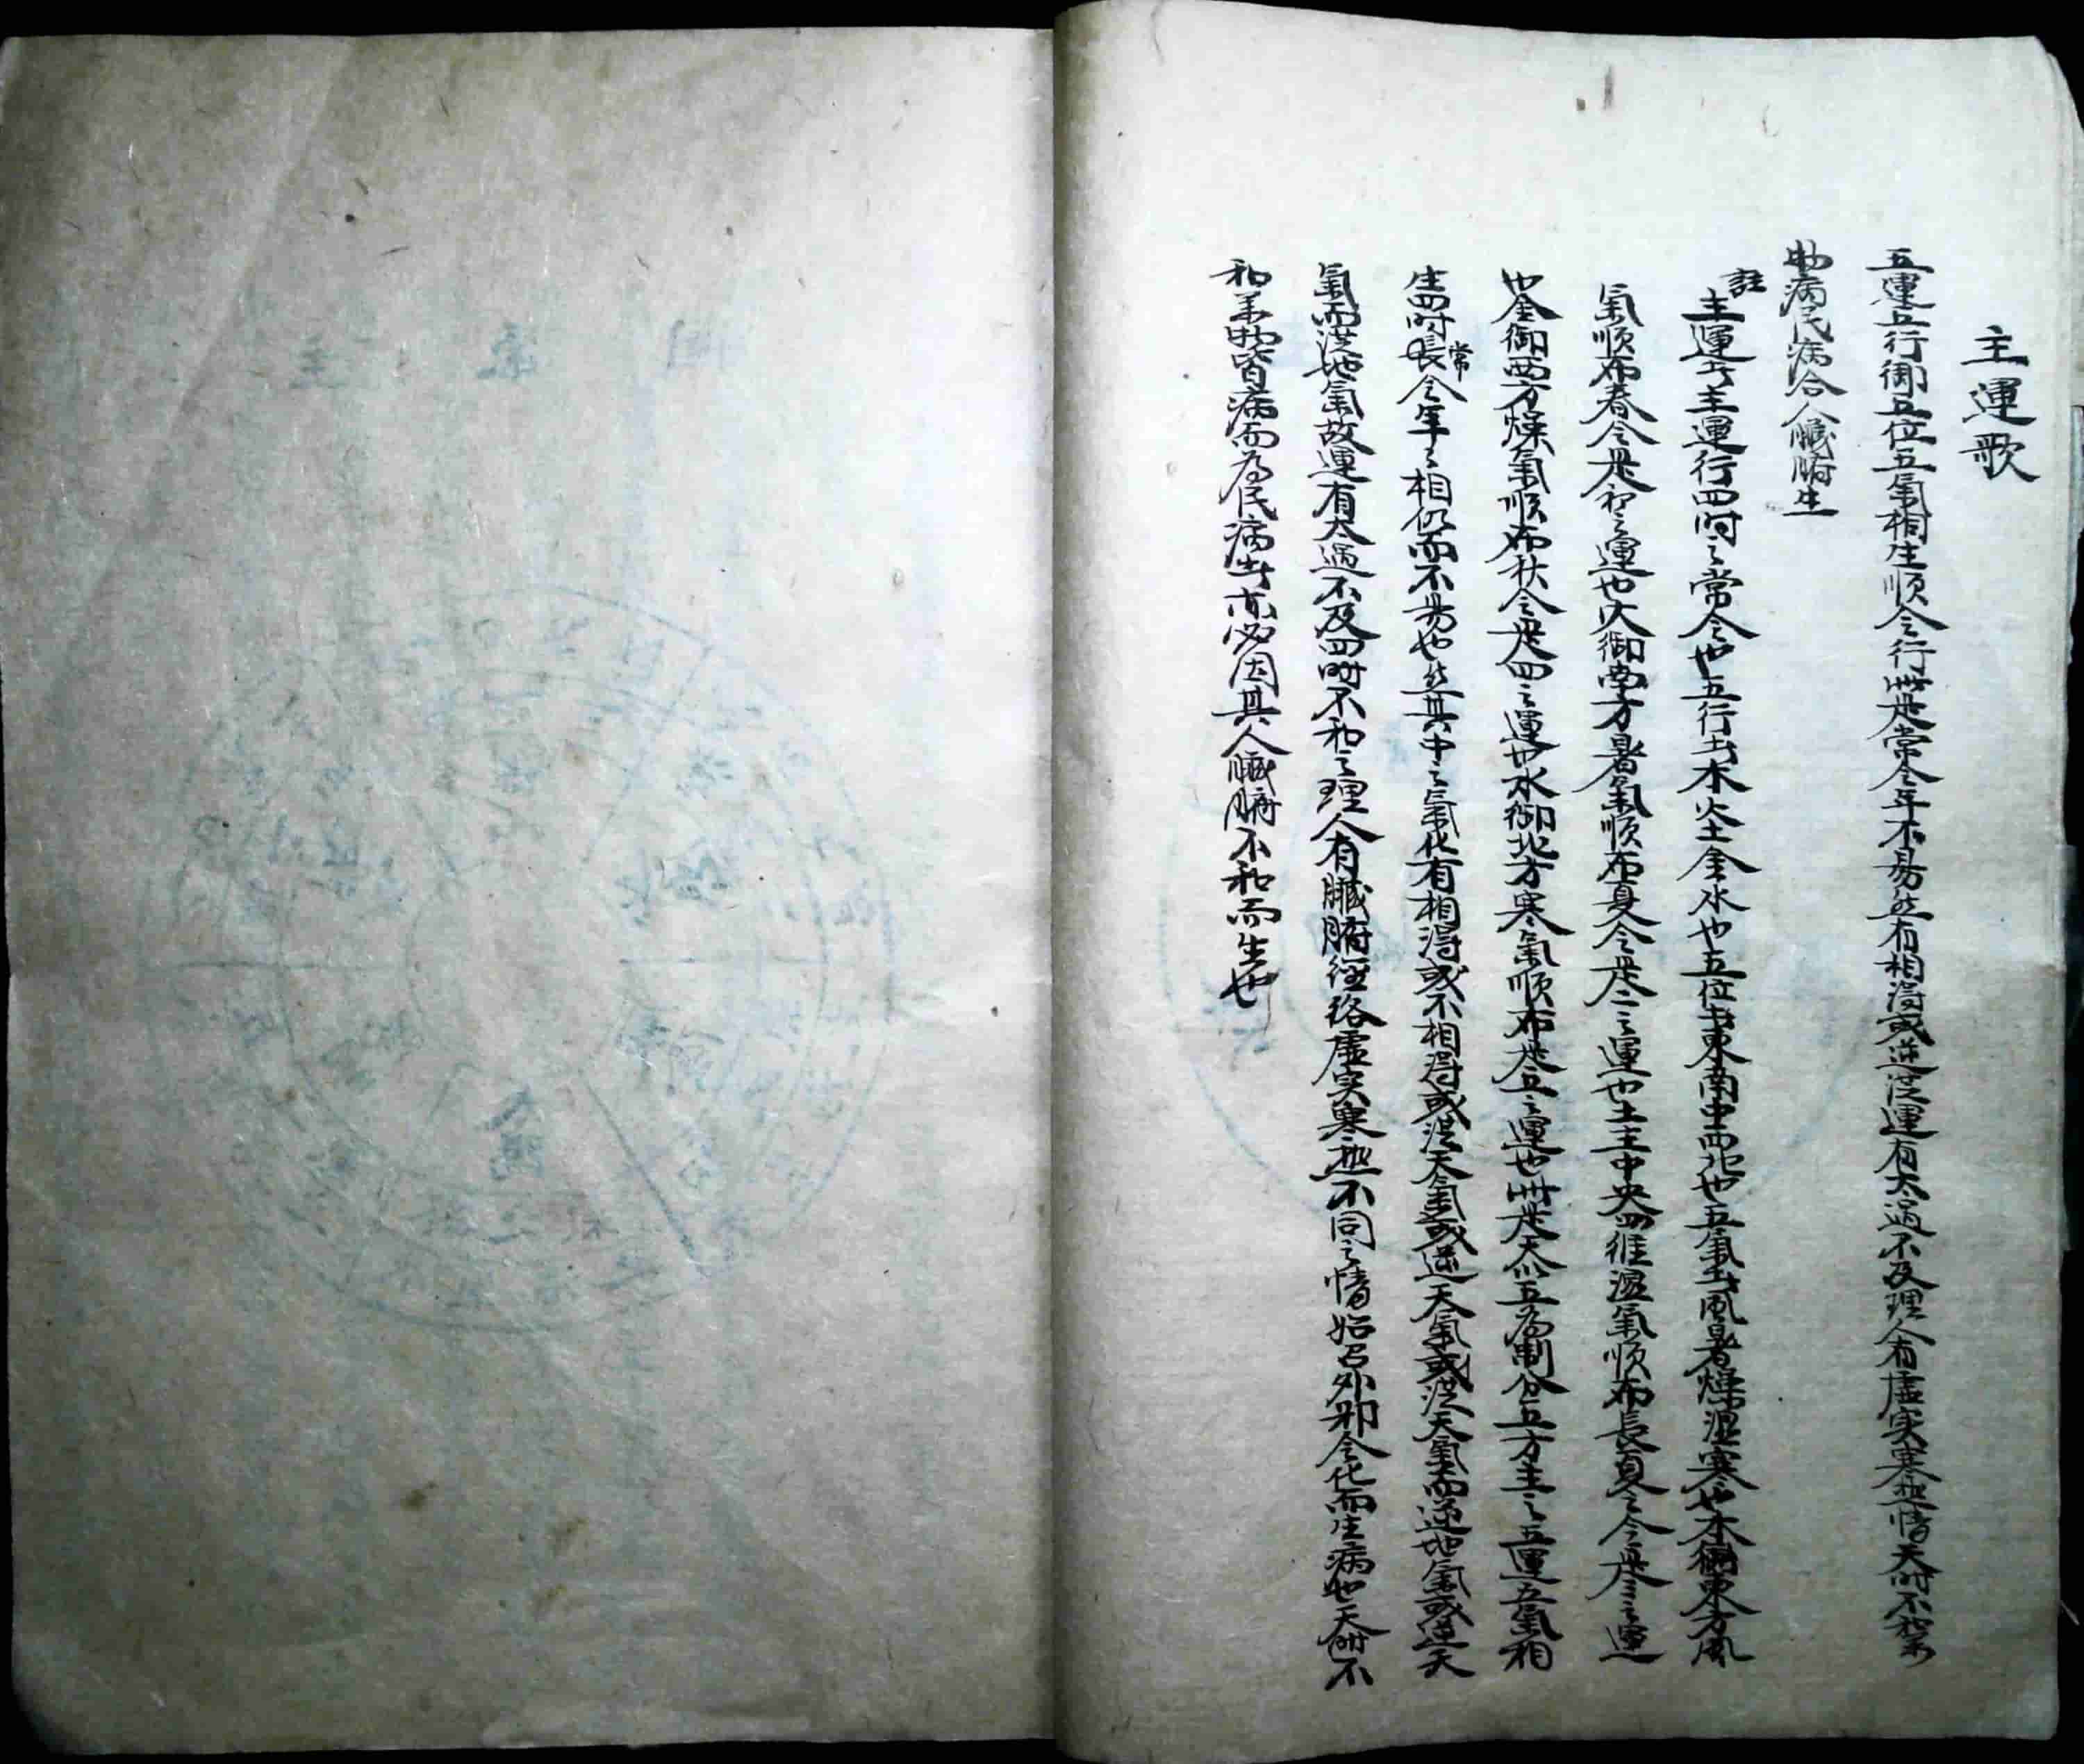 主運歌
五運五行御五位五氣相生順令行此是常令年不易然有相得或逆從運有太過不及理人有虛实寒热情天時不和萬
物病民病合人臟腑生
註
主運者主運行四時之常令也五行者木火土金水也五位者東南中西北也五氣者風暑燥湿寒也木御東方風
氣順布春令是初之運也火御南方暑氣順布夏令是二之運也土主中央四維湿氣順布長夏之令是三之運
也金御西方燥氣順布秋令是四之運也水御北方寒氣順布是五之運也此是天以五為制分五方主之五運五氣相
生四時長常令年之相仍而不易也然其中之氣化有相得或不相得或從天氣或逆天氣或從天氣而逆地氣或逆天
氣而從地氣故運有太過不及四時不和之理人有臟腑經絡虛实寒热不同之情始召外邪令化而生病也天時不
和萬物皆病而為民病者亦必因其人臟腑不和而生也